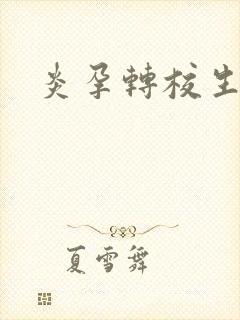 炎孕轉校生
夏雪舞